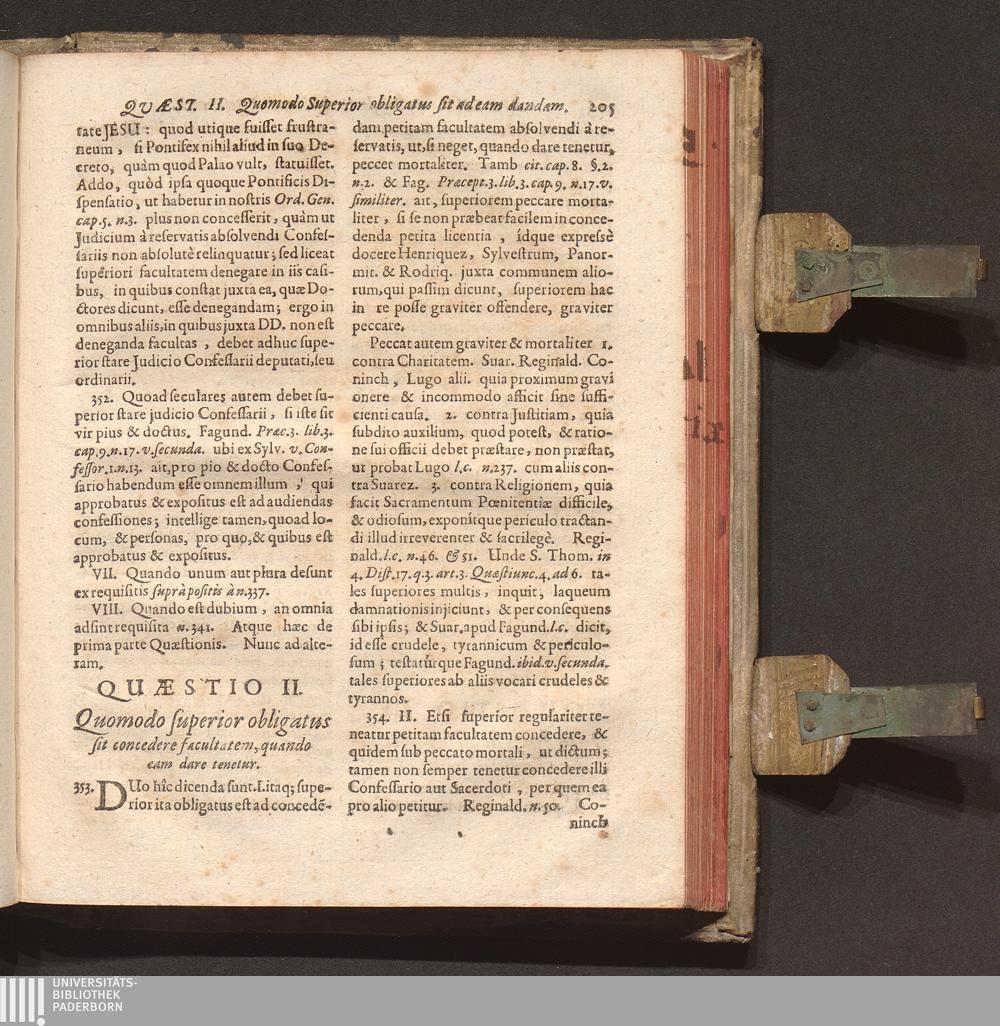 QUÆST. II. Quomodo Superior obligatus ſit ad eam dandam. 205
tate JESU: quod utique fuiſſet fruſtra-
neum, ſi Pontifex nihil aliud in ſuo De-
creto, quàm quod Palao vult, ſtatuiſſet.
Addo, quòd ipſa quoque Pontificis Di-
ſpenſatio, ut habetur in noſtris Ord. Gen.
cap. 5. n. 3. plus non conceſſerit, quàm ut
Judicium à reſervatis abſolvendi Confeſ-
ſariis non abſolutè relinquatur; ſed liceat
ſuperiori facultatem denegare in iis caſi-
bus, in quibus conſtat juxta ea, quæ Do-
ctores dicunt, eſſe denegandam; ergo in
omnibus aliis, in quibus juxta DD. non eſt
deneganda facultas, debet adhuc ſupe-
rior ſtare Judicio Confeſſarii deputati, ſeu
ordinarii.
352. Quoad ſeculares autem debet ſu-
perior ſtare judicio Confeſſarii, ſi iſte ſit
vir pius & doctus. Fagund. Præc. 3. lib. 3.
cap. 9. n. 17. v. ſecunda. ubi ex Sylv. v. Con-
feſſor. 1. n. 13. ait, pro pio & docto Confeſ-
ſario habendum eſſe omnem illum, qui
approbatus & expoſitus eſt ad audiendas
confeſſiones; intellige tamen, quoad lo-
cum, & perſonas, pro quo, & quibus eſt
approbatus & expoſitus.
VII. Quando unum aut plura deſunt
ex requiſitis ſuprà poſitis à n. 337.
VIII. Quando eſt dubium, an omnia
adſint requiſita n. 341. Atque hæc de
prima parte Quæſtionis. Nunc ad alte-
ram.
QUÆSTIO II.
Quomodo ſuperior obligatus
ſit concedere facultatem, quando
eam dare tenetur.
353. DUo hîc dicenda ſunt. I. itaq; ſupe-
rior ita obligatus eſt ad concedẽ-
dam petitam facultatem abſolvendi à re-
ſervatis, ut, ſi neget, quando dare tenetur,
peccet mortaliter. Tamb cit. cap. 8. §. 2.
n. 2. & Fag. Præcept. 3. lib. 3. cap. 9. n. 17. v.
ſimiliter. ait, ſuperiorem peccare morta-
liter, ſi ſe non præbeat facilem in conce-
denda petita licentia, ídque expreſsè
docere Henriquez, Sylveſtrum, Panor-
mit. & Rodriq. juxta communem alio-
rum, qui paſſim dicunt, ſuperiorem hac
in re poſſe graviter offendere, graviter
peccare.
Peccat autem graviter & mortaliter 1.
contra Charitatem. Suar. Reginald. Co-
ninch, Lugo alii. quia proximum gravi
onere & incommodo afficit ſine ſuffi-
cienti cauſa. 2. contra Juſtitiam, quia
ſubdito auxilium, quod poteſt, & ratio-
ne ſui officii debet præſtare, non præſtat,
ut probat Lugo l. c. n. 237. cum aliis con-
tra Suarez. 3. contra Religionem, quia
facit Sacramentum Pœnitentiæ difficile,
& odioſum, exponítque periculo tractan-
di illud irreverenter & ſacrilegè. Regi-
nald. l. c. n. 46. & 51. Unde S. Thom. in
4. Diſt. 17. q. 3. art. 3. Quæſtiunc. 4. ad 6. ta-
les ſuperiores multis, inquit, laqueum
damnationis injiciunt, & per conſequens
ſibi ipſis; & Suar. apud Fagund. l. c. dicit,
id eſſe crudele, tyrannicum & periculo-
ſum; teſtatúrque Fagund. ibid. v. ſecunda,
tales ſuperiores ab aliis vocari crudeles &
tyrannos.
354. II. Etſi ſuperior regulariter te-
neatur petitam facultatem concedere, &
quidem ſub peccato mortali, ut dictum;
tamen non ſemper tenetur concedere illi
Confeſſario aut Sacerdoti, per quem ea
pro alio petitur. Reginald. n. 50. Co-
ninch
UNIVERSITÄTS-
BIBLIOTHEK
PADERBORN